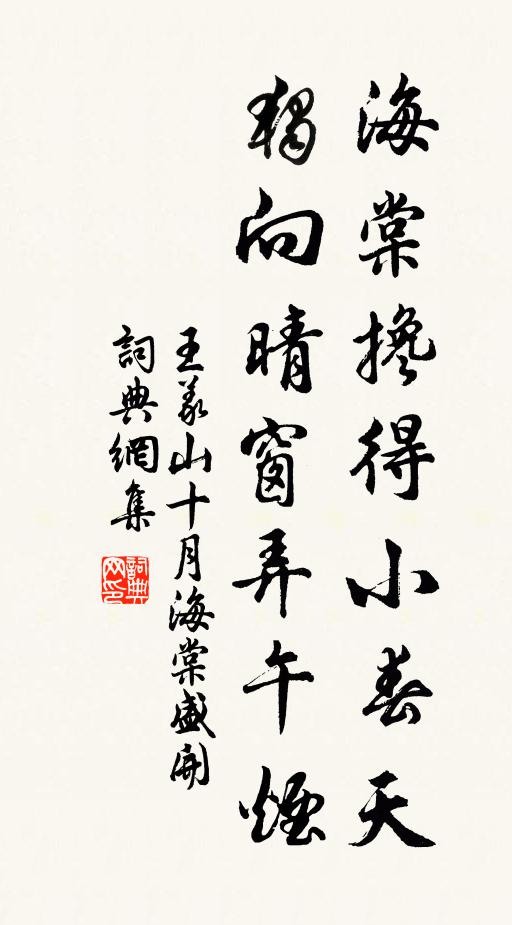 海棠搀得小春天
独向晴窗弄午烟
王義山十月海棠盛開
詞典網集
詞典网印